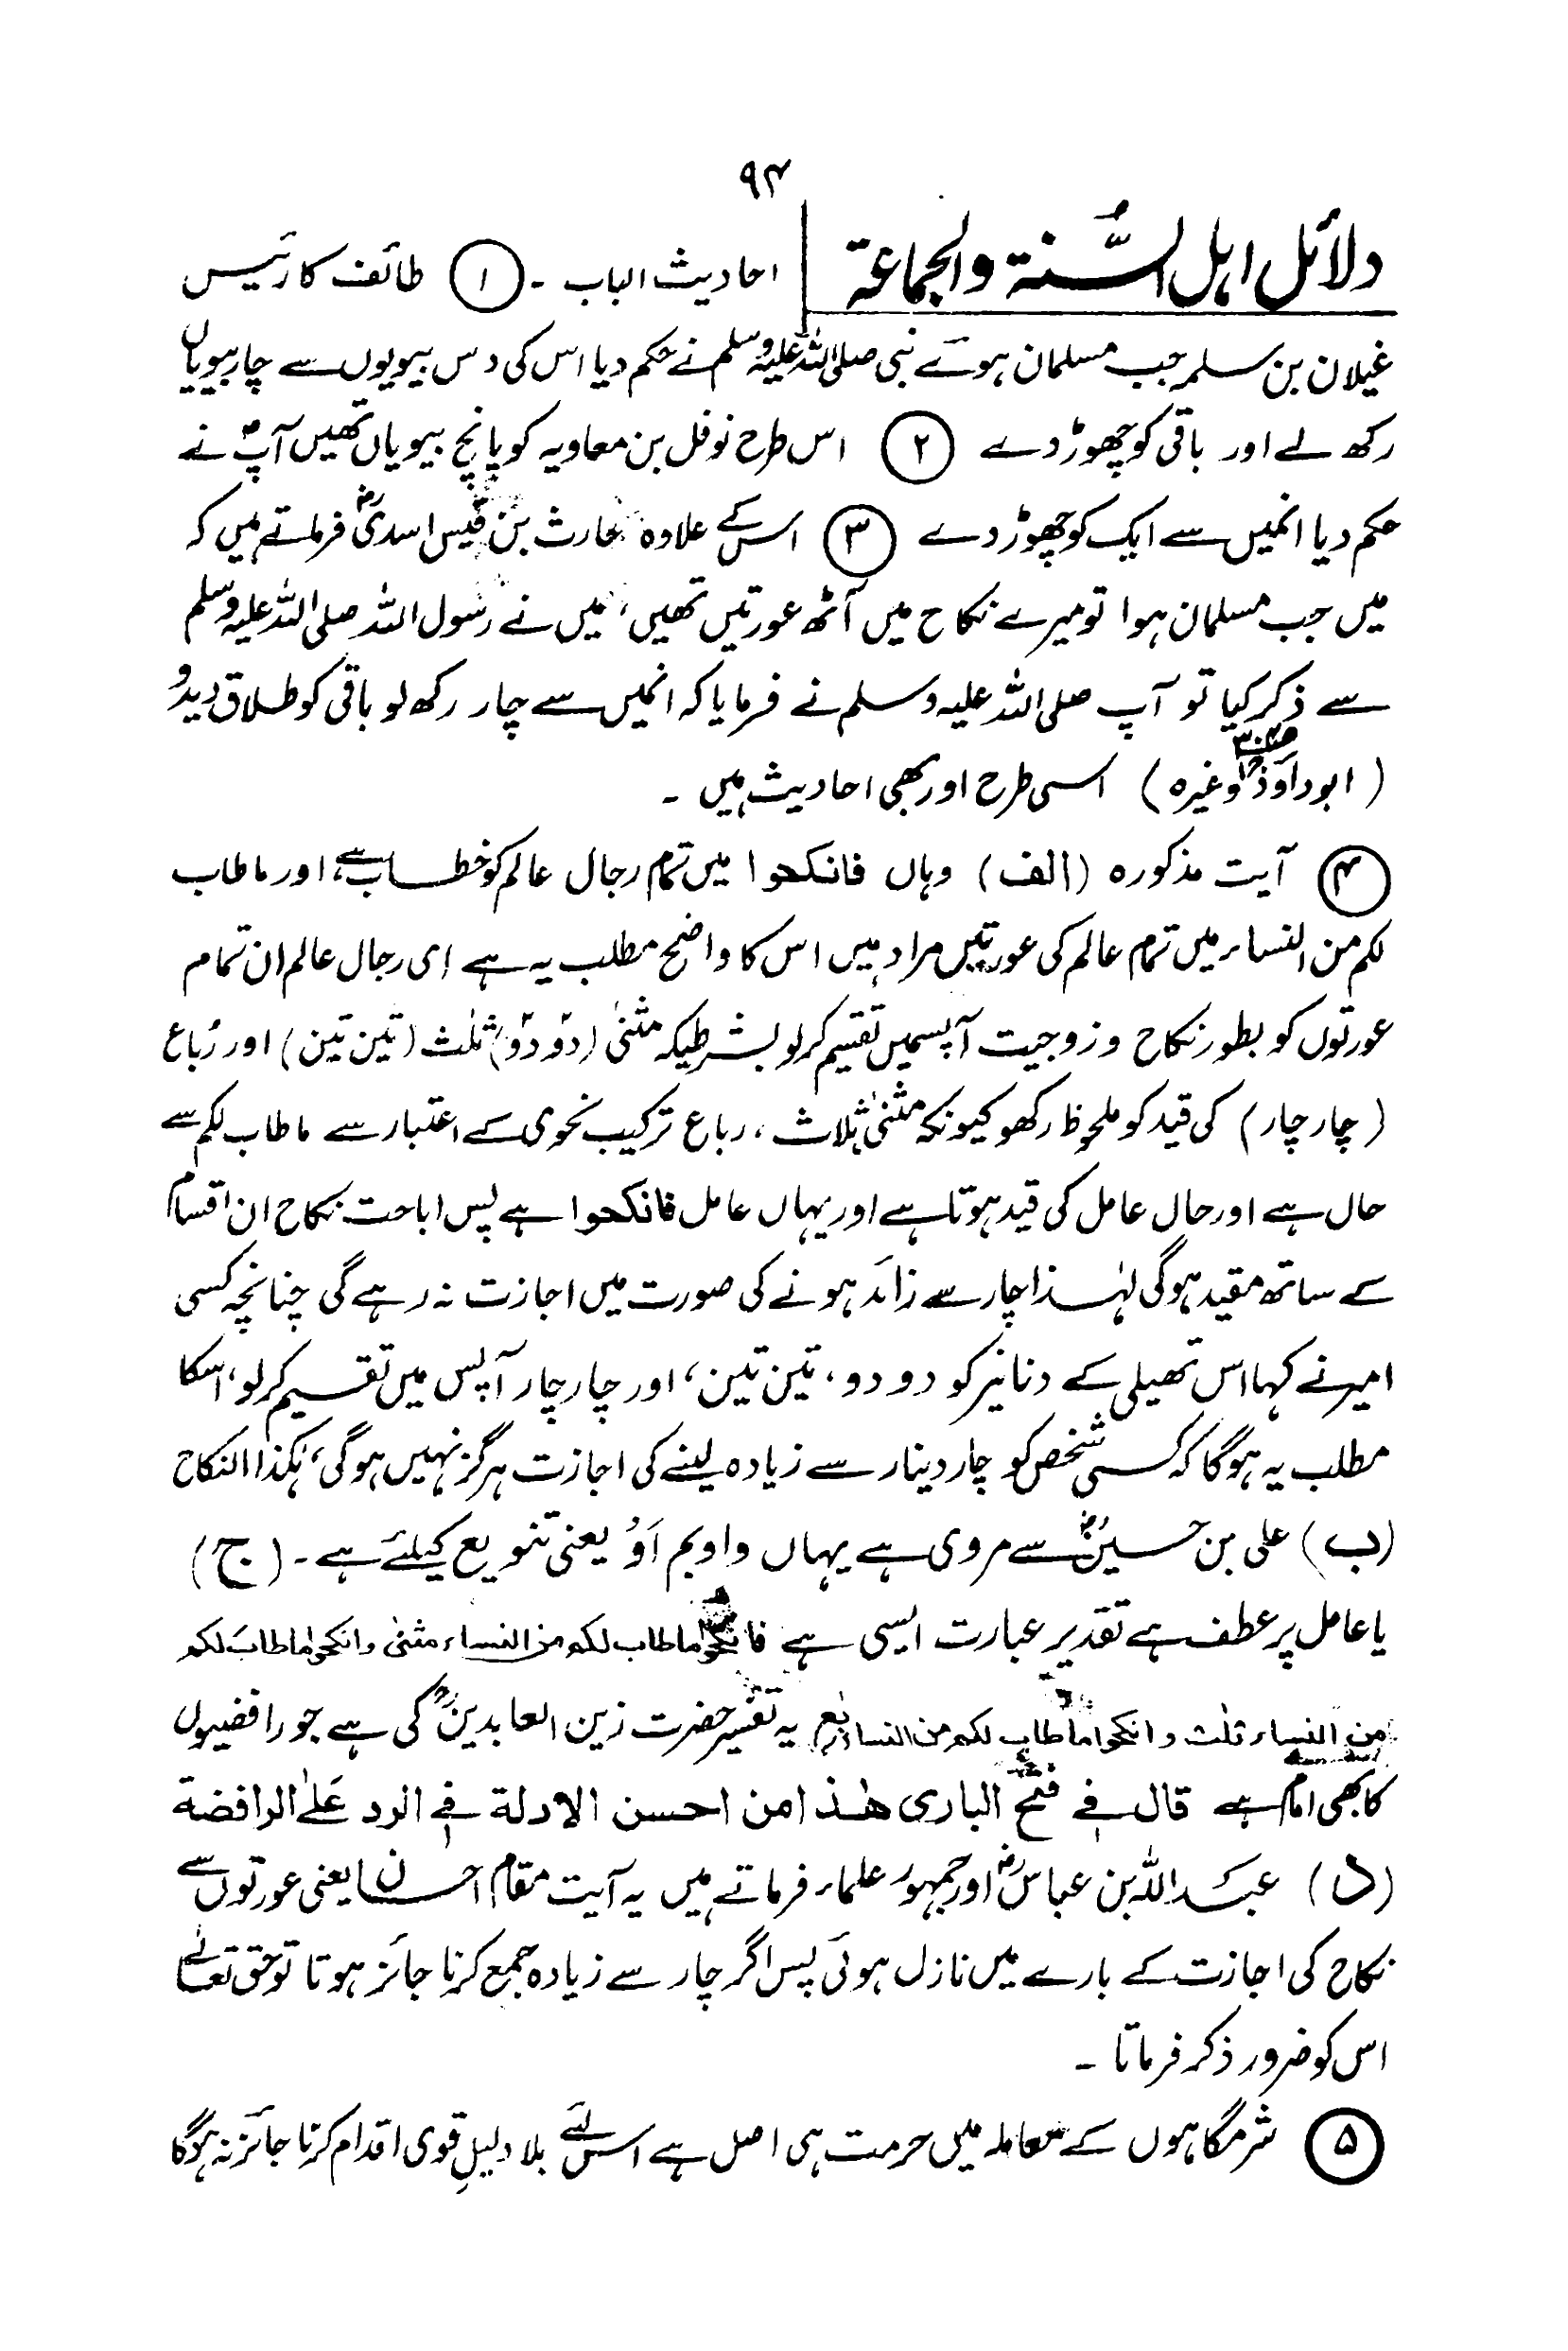 ۹۴
دلائل اہل السُّنۃ والجماعۃ احادیث الباب ۔ ① طائف کا رئیس
غیلان بن سلمہ جب مسلمان ہوئے نبی صلی اللہ علیہ وسلم نے حکم دیا اس کی دس بیویوں سے چار بیویاں
رکھ لے اور باقی کو چھوڑ دے ② اس طرح نوفل بن معاویہ کو پانچ بیویاں تھیں آپؐ نے
حکم دیا انمیں سے ایک کو چھوڑ دے ③ اس کے علاوہ حارث بن قیس اسدیؓ فرماتے ہیں کہ
میں جب مسلمان ہوا تو میرے نکاح میں آٹھ عورتیں تھیں، میں نے رسول اللہ صلی اللہ علیہ وسلم
سے ذکر کیا تو آپ صلی اللہ علیہ وسلم نے فرمایا کہ انمیں سے چار رکھ لو باقی کو طلاق دیدو
(ابوداؤد وغیرہ) اسی طرح اور بھی احادیث ہیں ۔
④ آیت مذکورہ (الف) وہاں فانکحوا میں تمام رجال عالم کو خطاب ہے، اور ماطاب
لکم من النساء میں تمام عالم کی عورتیں مراد ہیں اس کا واضح مطلب یہ ہے ای رجال عالم ان تمام
عورتوں کو بطور نکاح و زوجیت آپسمیں تقسیم کرلو بشرطیکہ مثنیٰ (دو دو) ثلٰث (تین تین) اور رُباع
(چار چار) کی قید کو ملحوظ رکھو کیونکہ مثنیٰ ثلاث، رباع ترکیب نحوی کے اعتبار سے ماطاب لکم سے
حال ہے اور حال عامل کی قید ہوتا ہے اور یہاں عامل فانکحوا ہے پس اباحت نکاح ان اقسام
کے ساتھ مقید ہوگی لہٰذا چار سے زائد ہونے کی صورت میں اجازت نہ رہے گی چنانچہ کسی
امیر نے کہا اس تھیلی کے دنانیر کو دو دو، تین تین، اور چار چار آپس میں تقسیم کرلو، اسکا
مطلب یہ ہوگا کہ کسی شخص کو چار دینار سے زیادہ لینے کی اجازت ہرگز نہیں ہوگی، ہٰکذا النکاح
(ب) علی بن حسینؓ سے مروی ہے یہاں واو بم اَوْ یعنی تنویع کیلئے ہے ۔ (ج)
یا عامل پر عطف ہے تقدیر عبارت ایسی ہے فانکحوا ماطاب لکم من النساء مثنیٰ وانکحوا ماطاب لکم
من النساء ثلٰث وانکحوا ماطاب لکم من النساء ربٰع یہ تفسیر حضرت زین العابدینؒ کی ہے جو رافضیوں
کا بھی امام ہے قال فی فتح الباری ھٰذا من احسن الادلة فی الرد علی الرافضة
(د) عبداللہ بن عباسؓ اور جمہور علماء فرماتے ہیں یہ آیت مقام احسان یعنی عورتوں سے
نکاح کی اجازت کے بارے میں نازل ہوئی پس اگر چار سے زیادہ جمع کرنا جائز ہوتا تو حق تعالےٰ
اس کو ضرور ذکر فرماتا ۔
⑤ شرمگاہوں کے معاملہ میں حرمت ہی اصل ہے اس لئے بلا دلیلِ قوی اقدام کرنا جائز نہ ہوگا